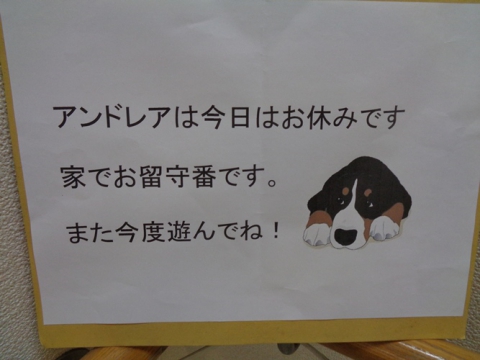 アンドレアは今日はお休みです
家でお留守番です。
また今度遊んでね！